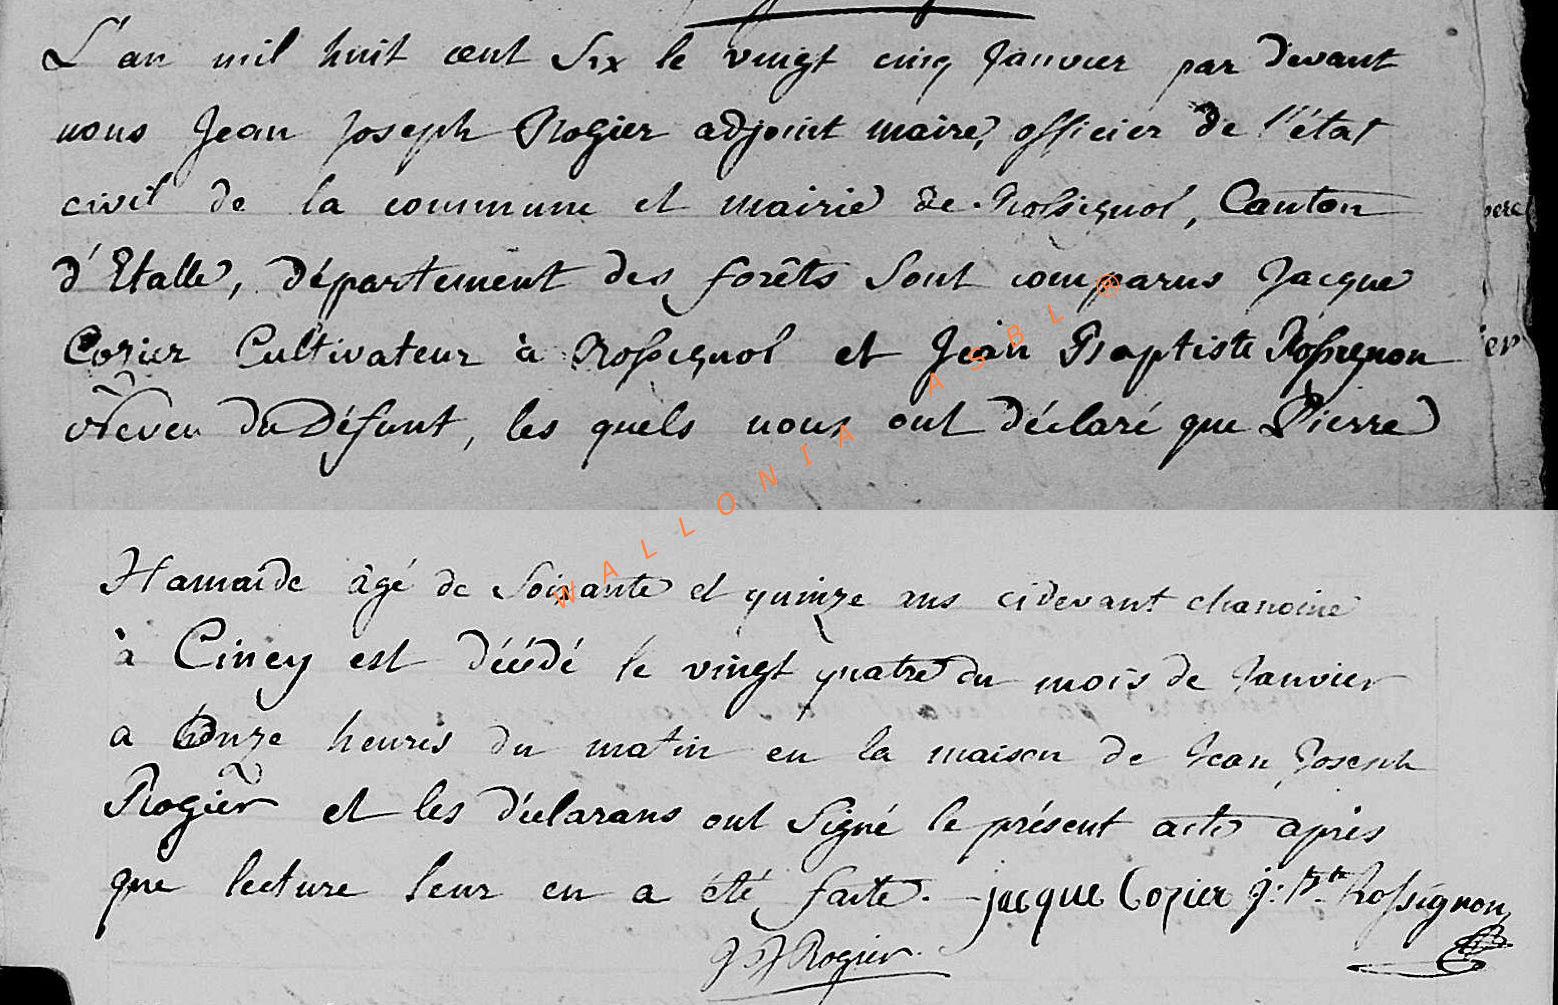 L'an mil huit cent Six le vingt cinq Janvier par devant
nous Jean Joseph Rogier adjoint maire, officier de l'état
civil de la commune et mairie de Rossignol, Canton
d'Etalle, département des forêts Sont comparus Jacque
Cozier Cultivateur à Rossignol et Jean Baptiste Rossignon
Neveu du Défunt, les quels nous ont déclaré que Pierre
Hamaide âgé de Soixante et quinze ans cidevant chanoine
à Ciney est décédé le vingt quatre du mois de Janvier
a onze heures du matin en la maison de Jean Joseph
Rogier et les déclarans ont Signé le présent acte après
que lecture leur en a été faite. jacque Cozier J. Bte Rossignon
J J Rogier
WALLONIA ASBL ®